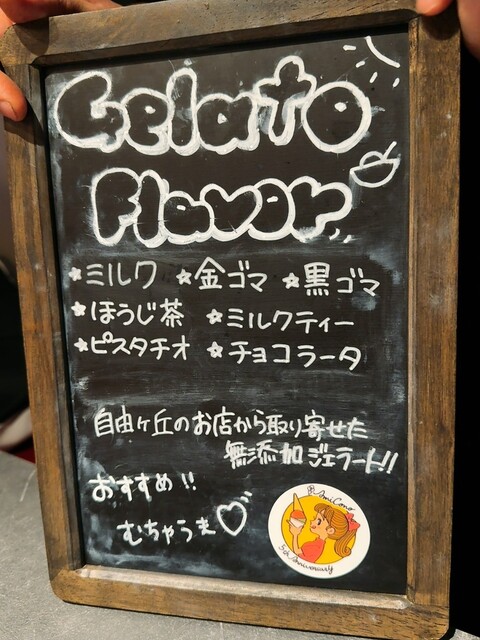 Gelato
Flavor
*ミルク *金ゴマ *黒ゴマ
*ほうじ茶 *ミルクティー
*ピスタチオ *チョコラータ
自由ヶ丘のお店から取り寄せた
無添加ジェラート!!
おすすめ!!
むちゃうま♡
AmiCono
5th Anniversary